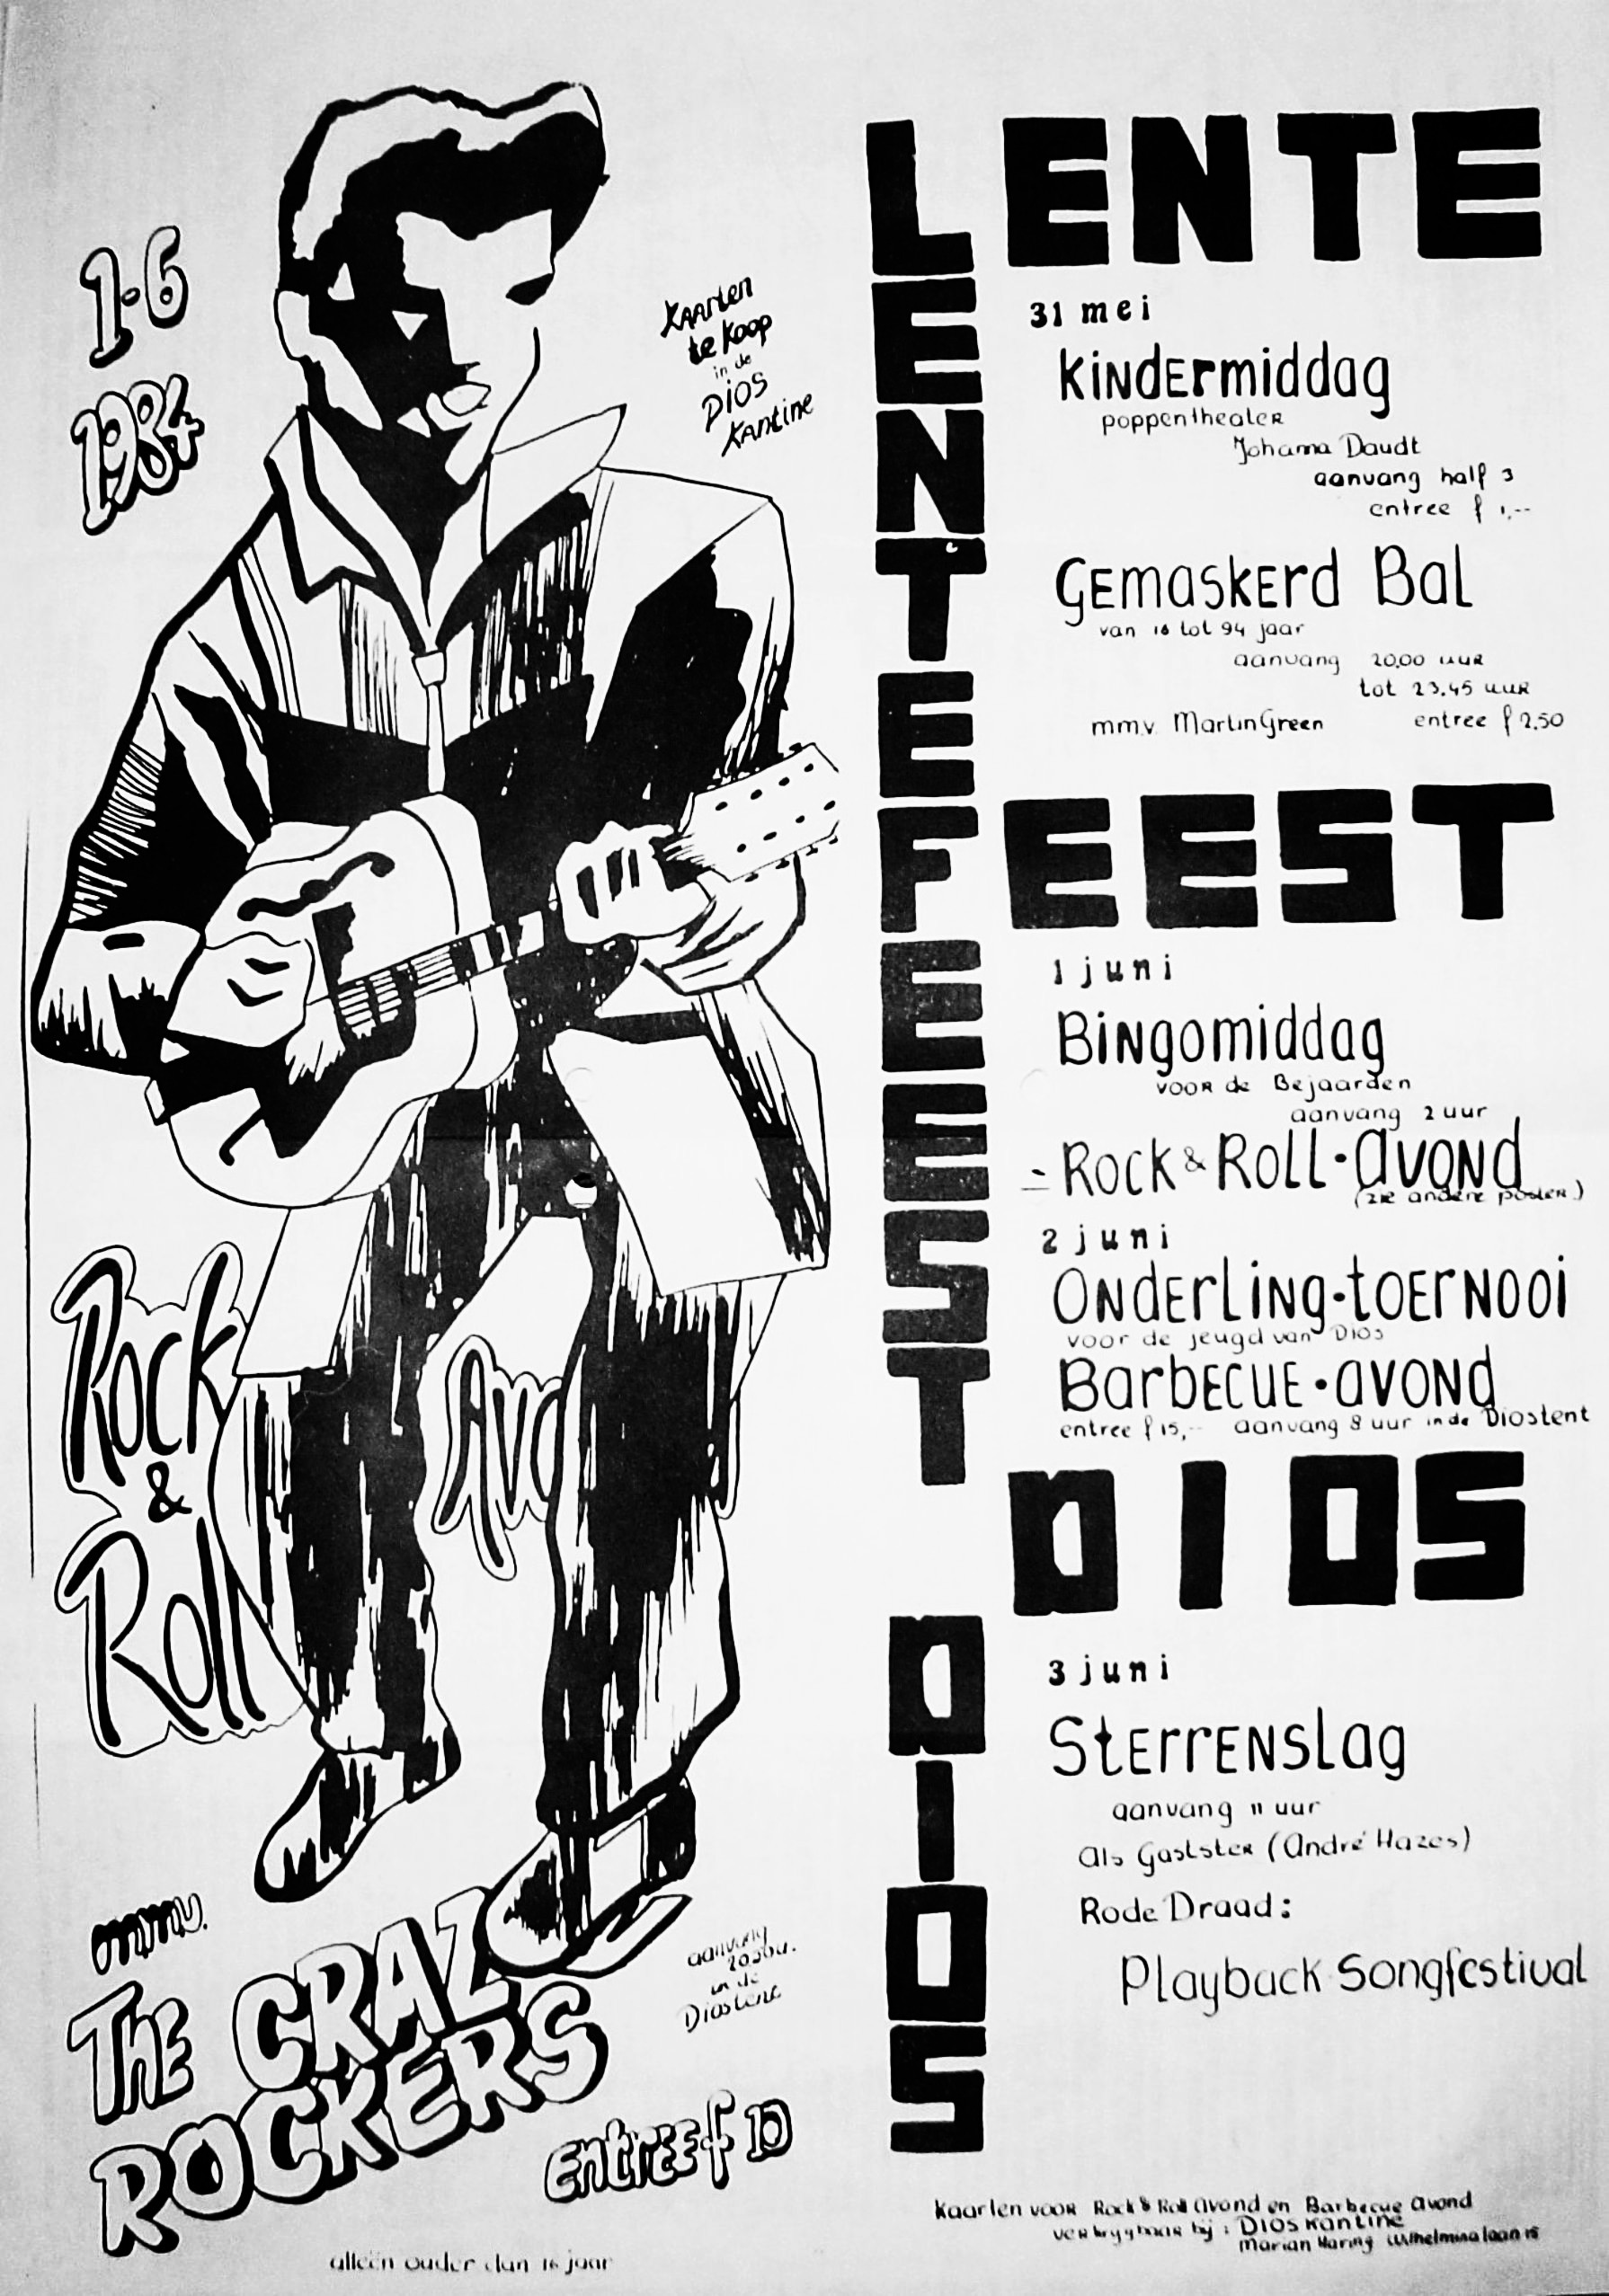 1-6
1984
Kaarten
te koop
in de
Dios
Kantine
Rock
&
Roll
Avo
mmv.
The CRAZ
ROCKERS
aanvang
in de
Diostent
entree f 10
alleen ouder dan 16 jaar
LENTEFEEST
DIOS
LENTE
31 mei
Kindermiddag
poppentheater
Johanna Daudt
aanvang half 3
entree f 1,--
Gemaskerd Bal
van 16 tot 94 jaar
aanvang 20.00 uur
tot 23.45 uur
mmv. Martin Green entree f 2,50
FEEST
1 juni
Bingomiddag
voor de Bejaarden
aanvang 2 uur
- Rock & Roll • avond
(zie andere poster)
2 juni
Onderling • toernooi
voor de jeugd van Dios
Barbecue • avond
entree f 15,-- aanvang 8 uur in de Diostent
DIOS
3 juni
Sterrenslag
aanvang 11 uur
als Gastster (André Hazes)
Rode Draad:
Playback Songfestival
Kaarten voor Rock & Roll avond en Barbecue avond
verkrygbaar by: Dios kantine
Marian Haring Wilhelminalaan 15